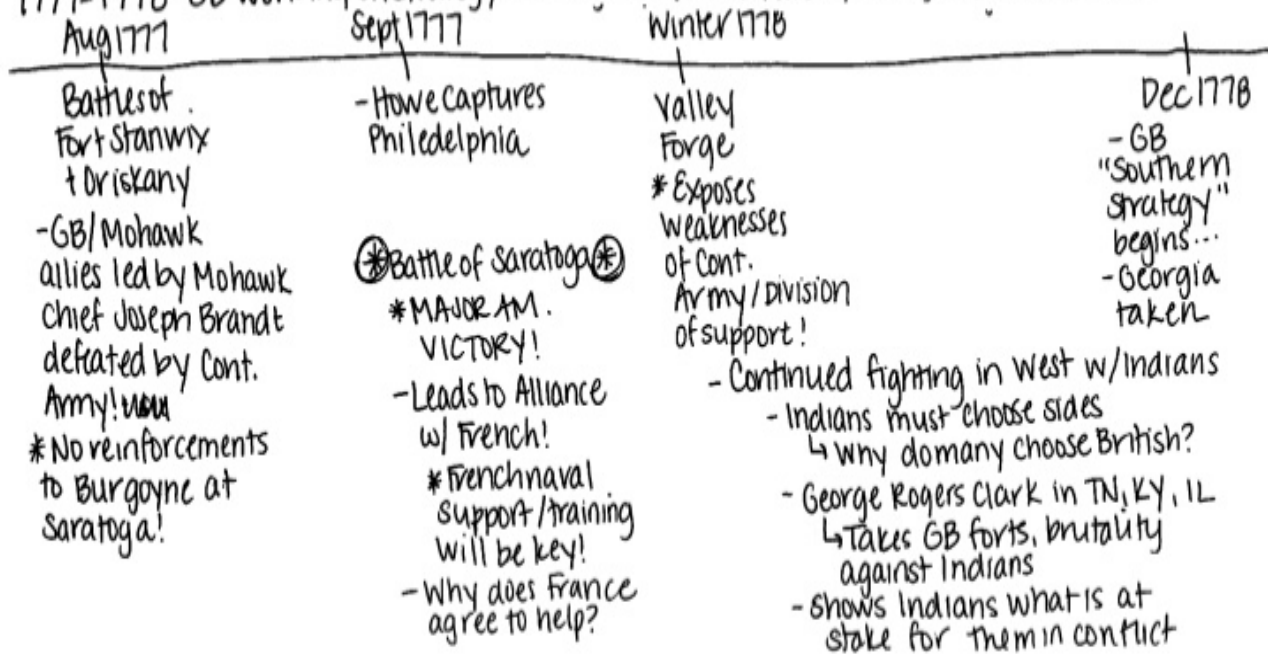 1777-1778
Aug 1777
Battles of
Fort Stanwix
+ Oriskany
-GB/Mohawk
allies led by Mohawk
Chief Joseph Brandt
defeated by Cont.
Army!
*No reinforcements
to Burgoyne at
Saratoga!
Sept 1777
-Howe Captures
Philedelphia
*Battle of Saratoga*
*MAJOR AM.
VICTORY!
-Leads to Alliance
w/ French!
*French naval
support/training
will be key!
-Why does France
agree to help?
Winter 1778
Valley
Forge
*Exposes
weaknesses
of Cont.
Army/Division
of support!
-Continued fighting in West w/Indians
-Indians must choose sides
↳Why do many choose British?
-George Rogers Clark in TN, KY, IL
↳Takes GB forts, brutality
against Indians
-Shows Indians what is at
stake for them in conflict
Dec 1778
-GB
"Southern
strategy"
begins...
-Georgia
taken